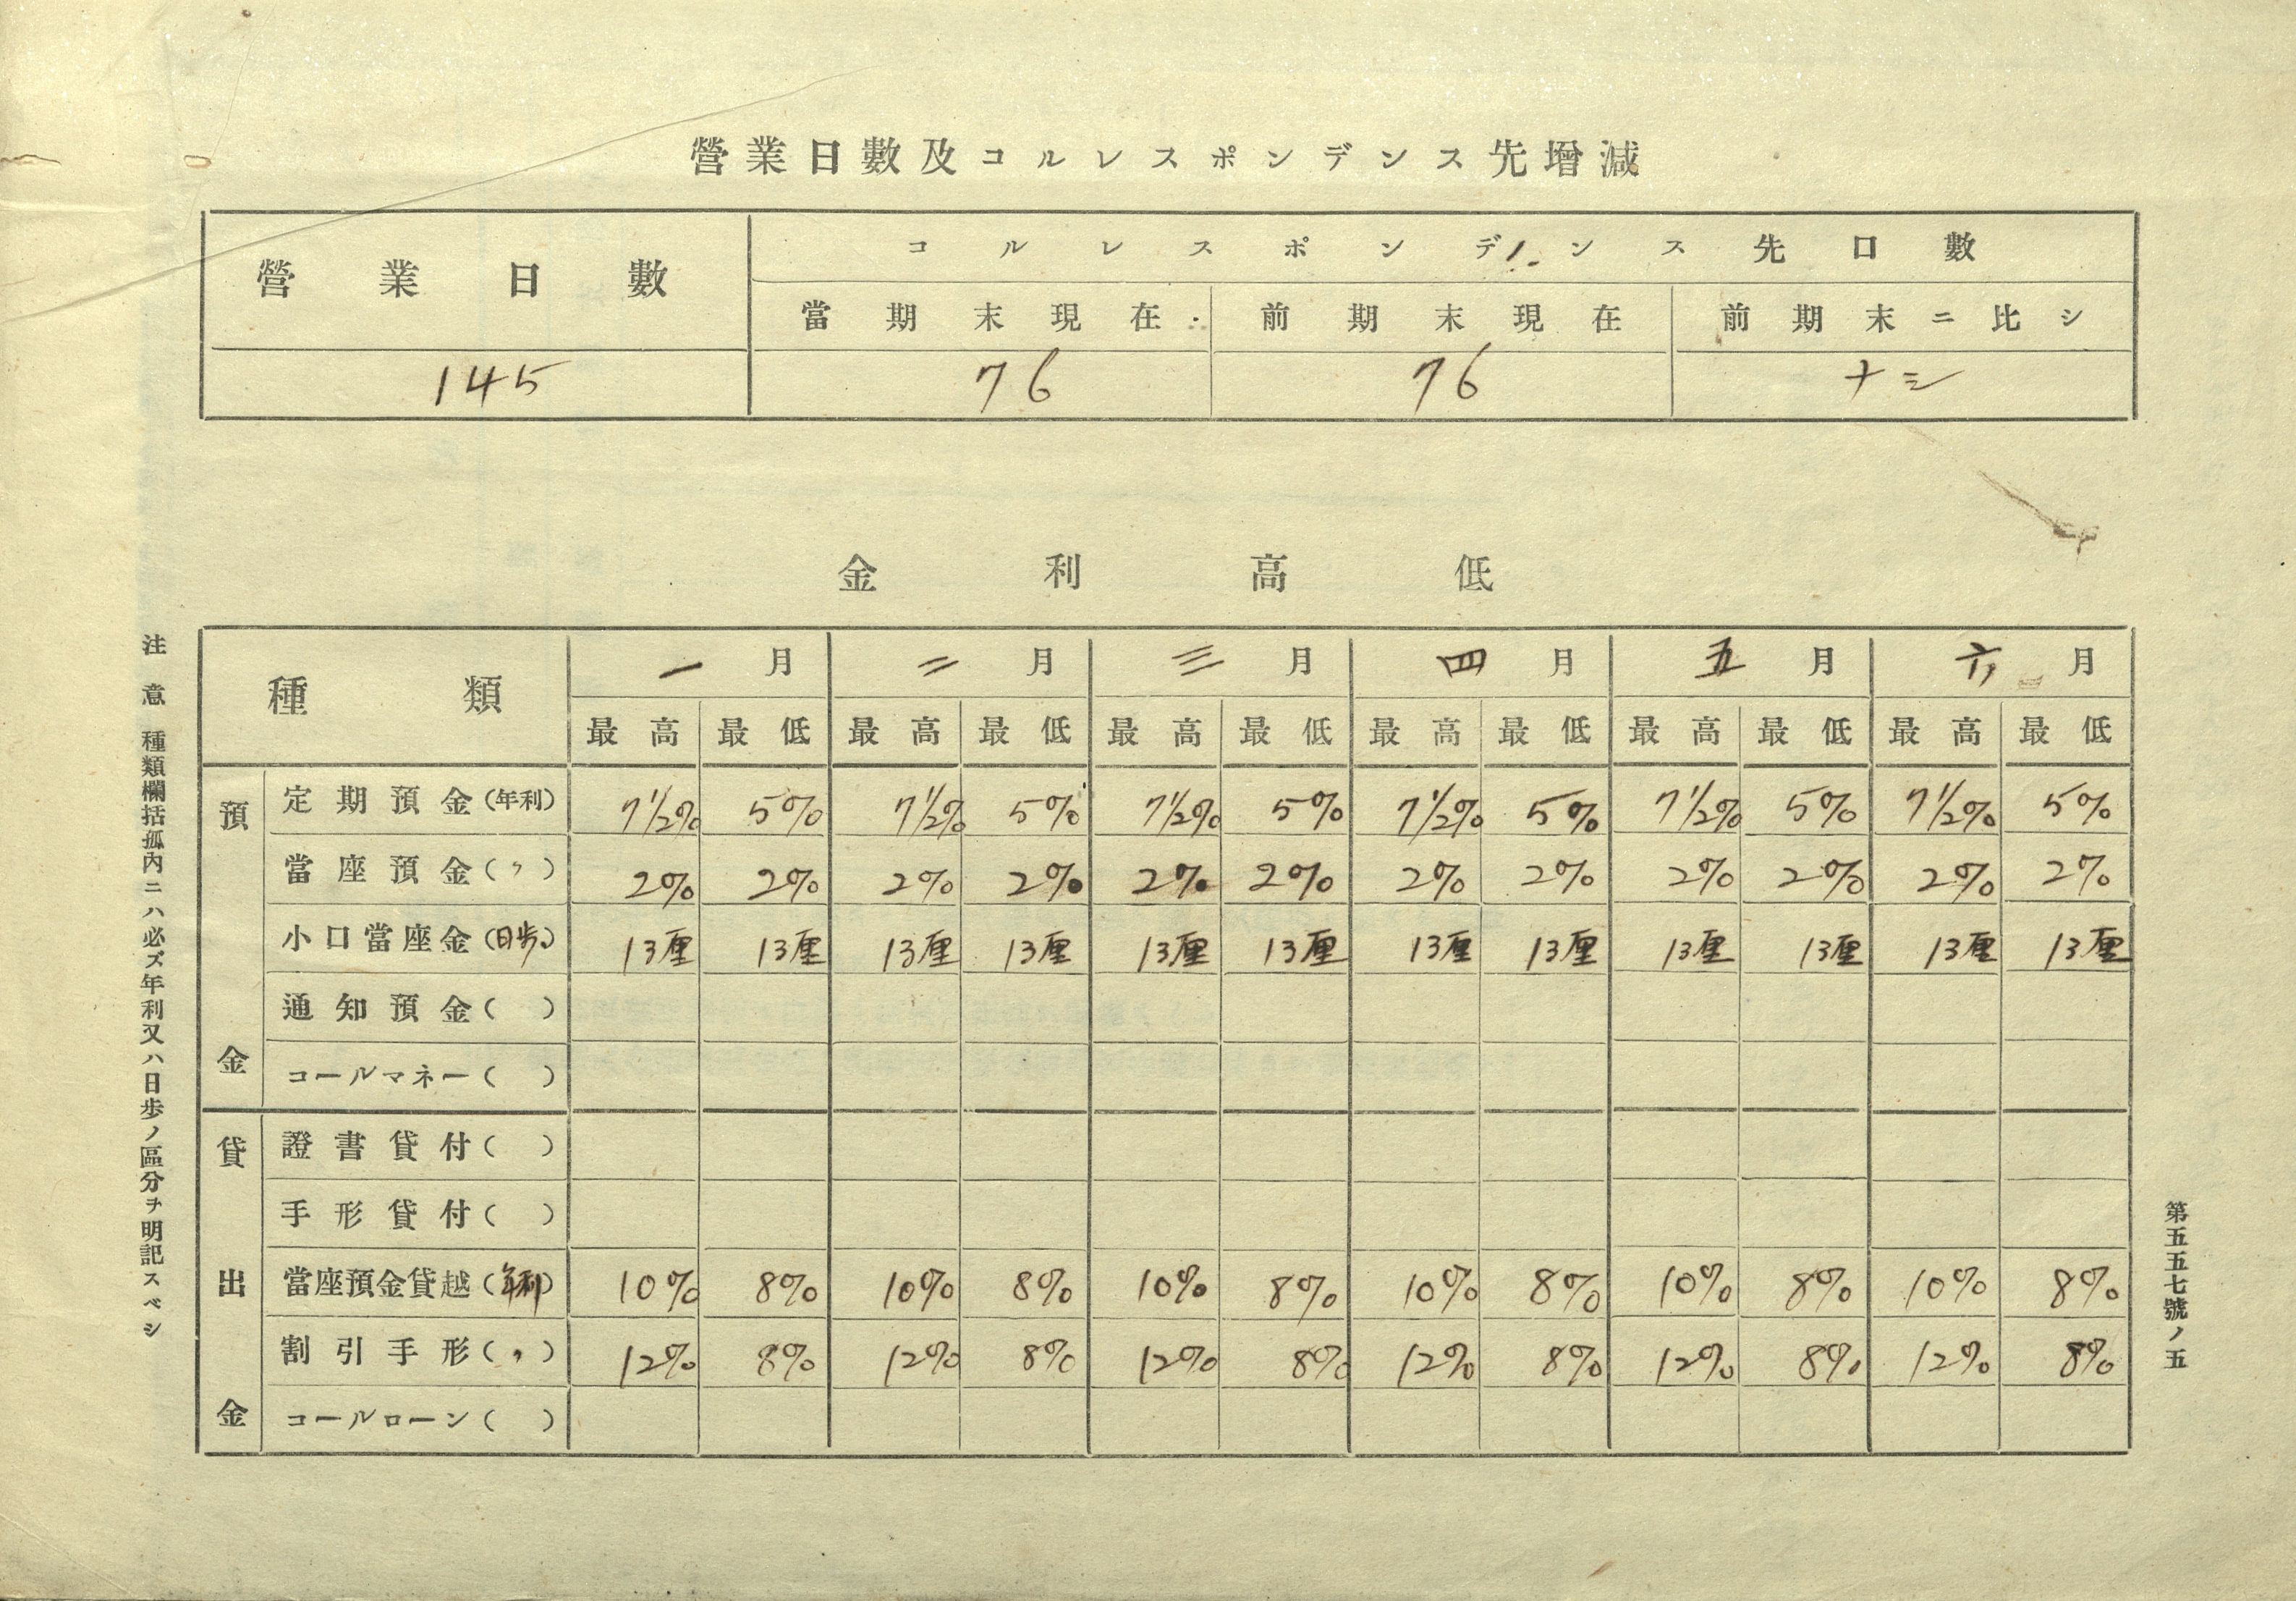 營業日數及コルレスポンデンス先增減
營業日數
コルレスポンデンス先口數
當期末現在 前期末現在 前期末ニ比シ
145 76 76 ナシ
金利高低
種類 一月 二月 三月 四月 五月 六月
最高 最低 最高 最低 最高 最低 最高 最低 最高 最低 最高 最低
預金
定期預金(年利) 7½% 5% 7½% 5% 7½% 5% 7½% 5% 7½% 5% 7½% 5%
當座預金(〃) 2% 2% 2% 2% 2% 2% 2% 2% 2% 2% 2% 2%
小口當座金(日歩) 13厘 13厘 13厘 13厘 13厘 13厘 13厘 13厘 13厘 13厘 13厘 13厘
通知預金( )
コールマネー( )
貸出金
證書貸付( )
手形貸付( )
當座預金貸越(年利) 10% 8% 10% 8% 10% 8% 10% 8% 10% 8% 10% 8%
割引手形(〃) 12% 8% 12% 8% 12% 8% 12% 8% 12% 8% 12% 8%
コールローン( )
注意 種類欄括孤內ニハ必ズ年利又ハ日歩ノ區分ヲ明記スベシ
第五五七號ノ五